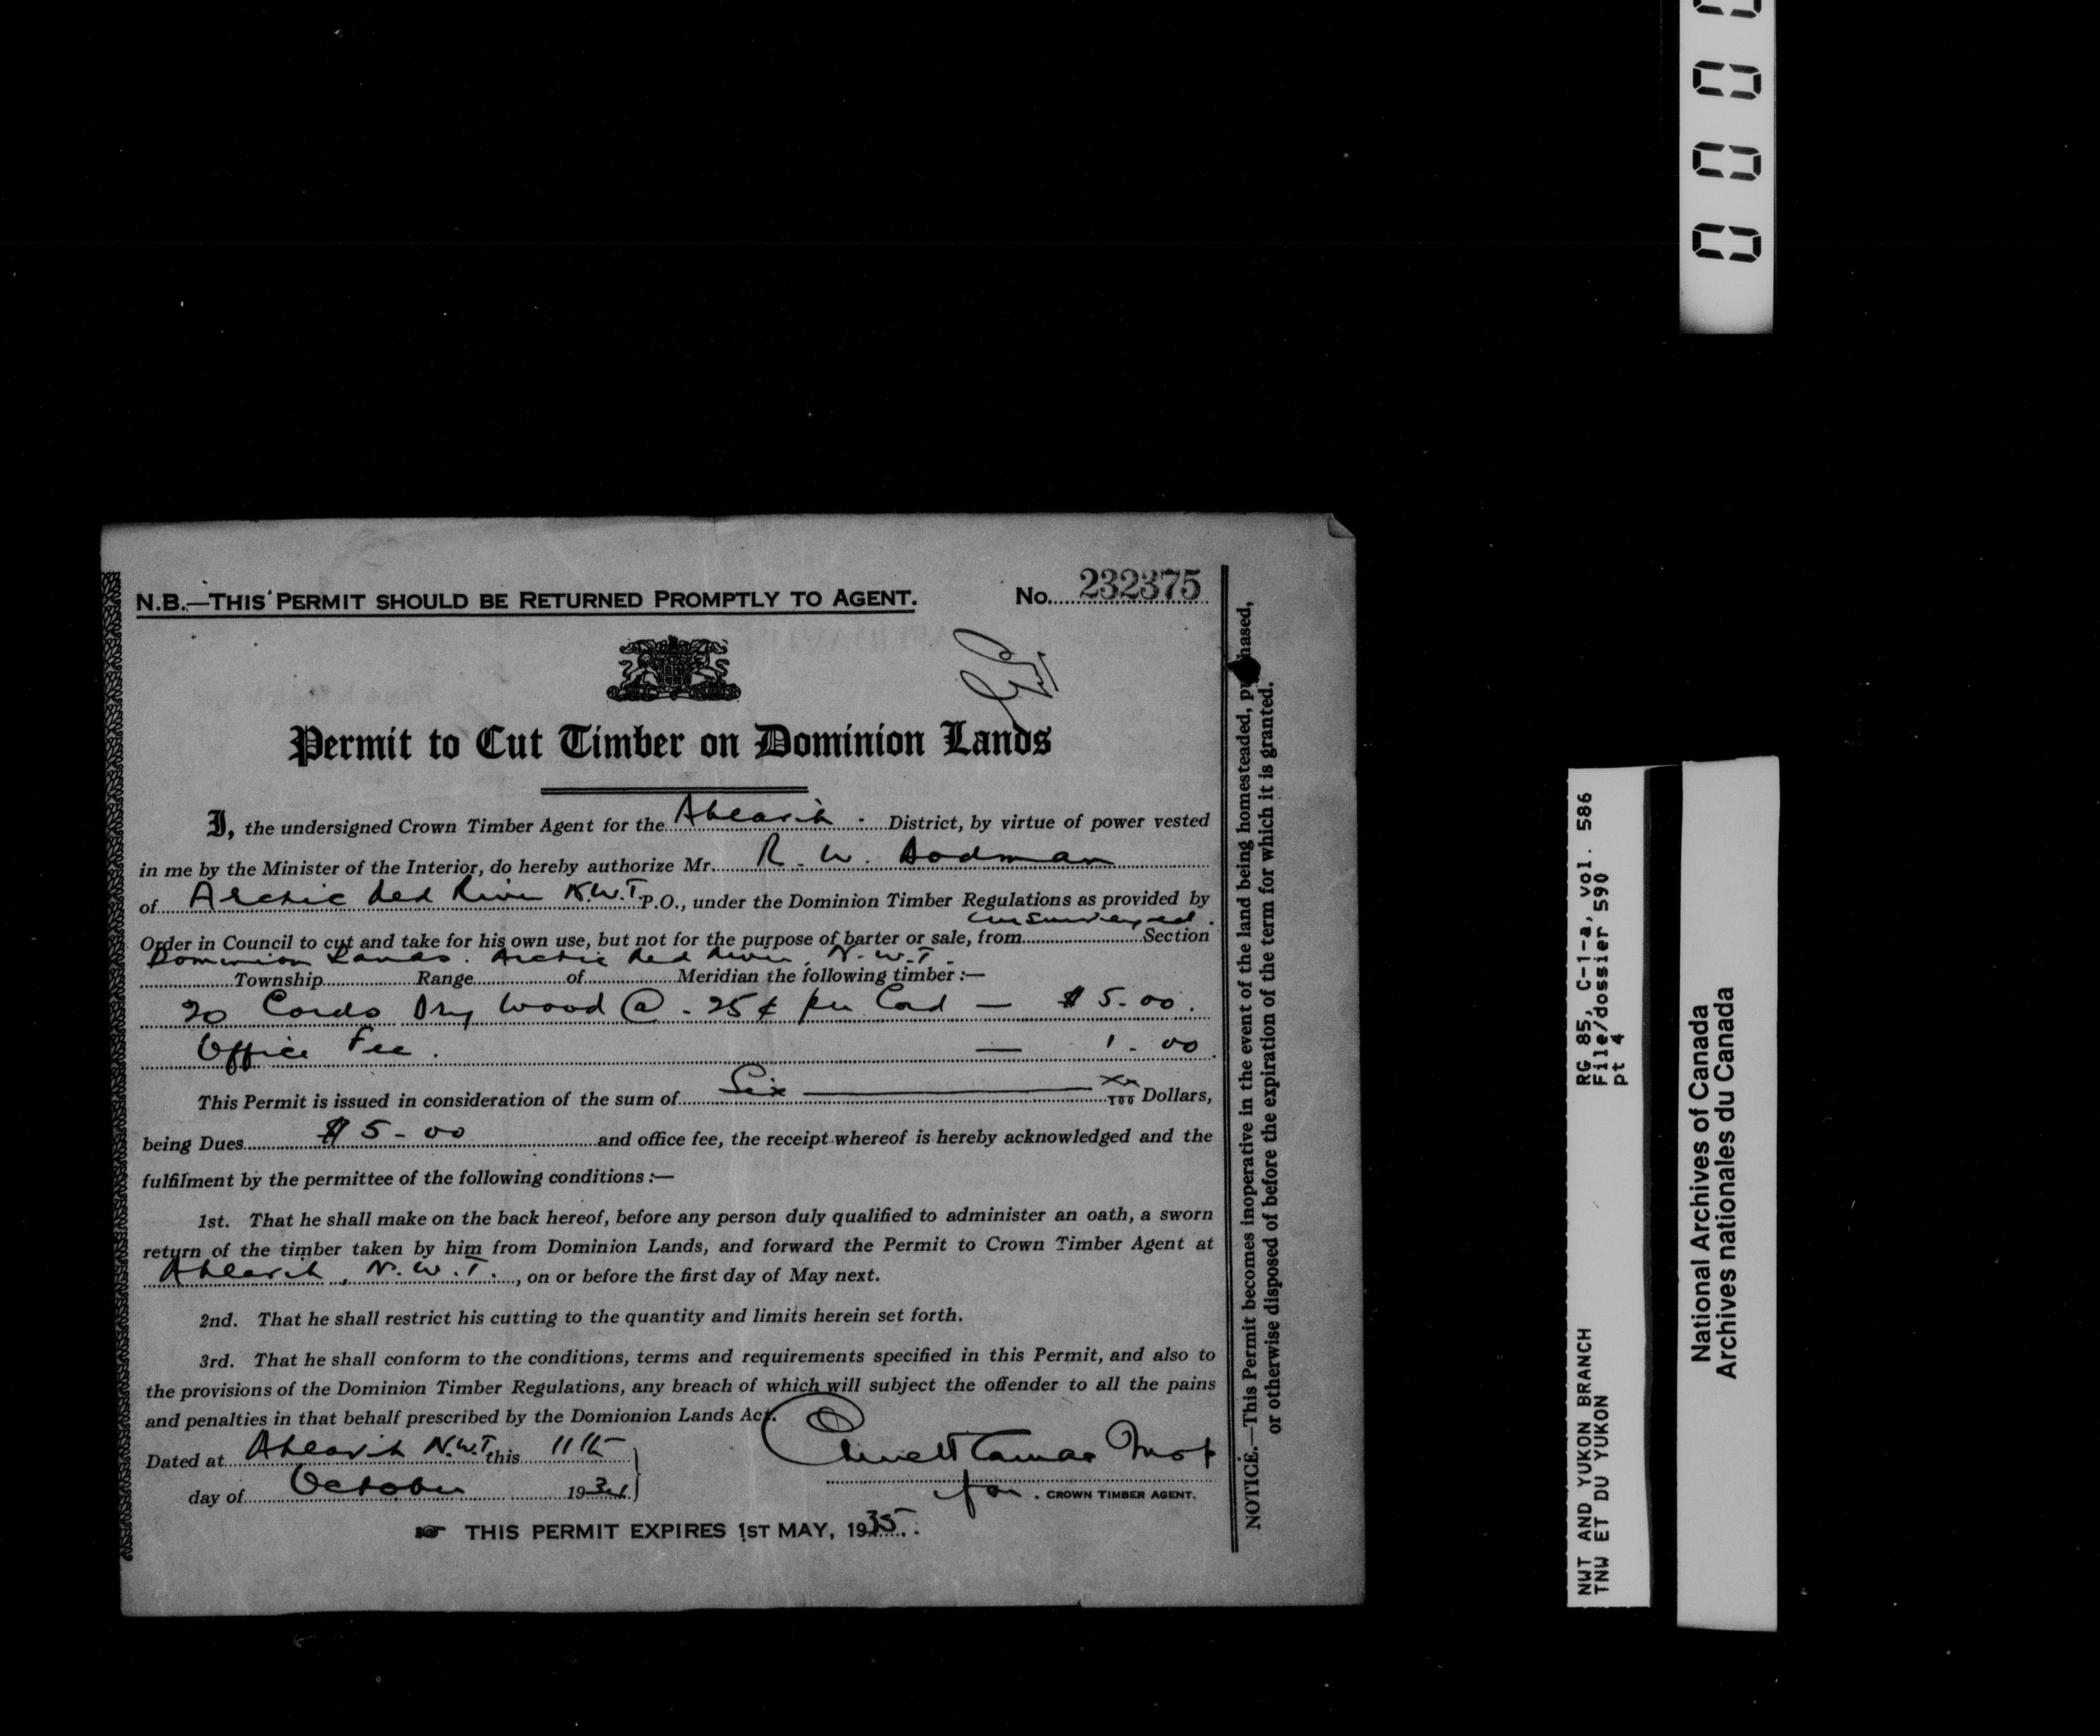 N.B.—THIS PERMIT SHOULD BE RETURNED PROMPTLY TO AGENT. No. 232375
Permit to Cut Timber on Dominion Lands
I, the undersigned Crown Timber Agent for the Aklavik District, by virtue of power vested
in me by the Minister of the Interior, do hereby authorize Mr. R. W. Dodman
of Arctic Red River N.W.T. P.O., under the Dominion Timber Regulations as provided by
unsurveyed
Order in Council to cut and take for his own use, but not for the purpose of barter or sale, from Section
Dominion Lands. Arctic Red River, N.W.T.
Township Range of Meridian the following timber:—
20 Cords Dry Wood @ .25¢ per Cord — $5.00.
Office Fee. — 1.00
This Permit is issued in consideration of the sum of Six xx/100 Dollars,
being Dues $5-00 and office fee, the receipt whereof is hereby acknowledged and the
fulfilment by the permittee of the following conditions:—
1st. That he shall make on the back hereof, before any person duly qualified to administer an oath, a sworn
return of the timber taken by him from Dominion Lands, and forward the Permit to Crown Timber Agent at
Aklavik, N.W.T., on or before the first day of May next.
2nd. That he shall restrict his cutting to the quantity and limits herein set forth.
3rd. That he shall conform to the conditions, terms and requirements specified in this Permit, and also to
the provisions of the Dominion Timber Regulations, any breach of which will subject the offender to all the pains
and penalties in that behalf prescribed by the Domionion Lands Act.
Dated at Aklavik N.W.T. this 11th
day of October 1934
for. CROWN TIMBER AGENT.
THIS PERMIT EXPIRES 1ST MAY, 1935.
NOTICE.—This Permit becomes inoperative in the event of the land being homesteaded, purchased,
or otherwise disposed of before the expiration of the term for which it is granted.
NWT AND YUKON BRANCH RG 85, C-1-a, vol. 586
TNW ET DU YUKON File/dossier 590
pt 4
National Archives of Canada
Archives nationales du Canada
0 0 0